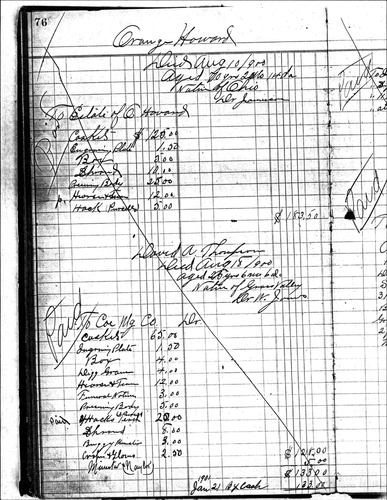 76
Orange Howard
Died Aug 10/900
Aged 70 yrs 2 Mo 11 da
Native of Ohio
Dr Jamison
Paid
To Estate of O Howard
Casket $ 125.00
Engraving Plate 1.50
Box 5.00
Shroud 10.00
Embg Body 25.00
Hearse & Team 12.00
Hack 5.00
$ 183.50
David A Thompson
Died Aug 15/900
aged 25 yrs 6 mos 6 da
Native of Grass Valley
Dr W. Jones
Paid
To Coe Mg Co Dr
Casket 65.00
Engraving Plate 1.50
Box 4.00
Digg Grave 4.00
Hearse & Team 12.00
Funeral Notice 3.00
Preserving Body 5.00
Paid Hacks 20.00
Shroud 8.00
Buggy 3.00
Crape & Gloves 2.50
Minister
$ 128.00
5.00
$ 133.00
1901
Jan 21 By Cash 133.00
Paid
Paid